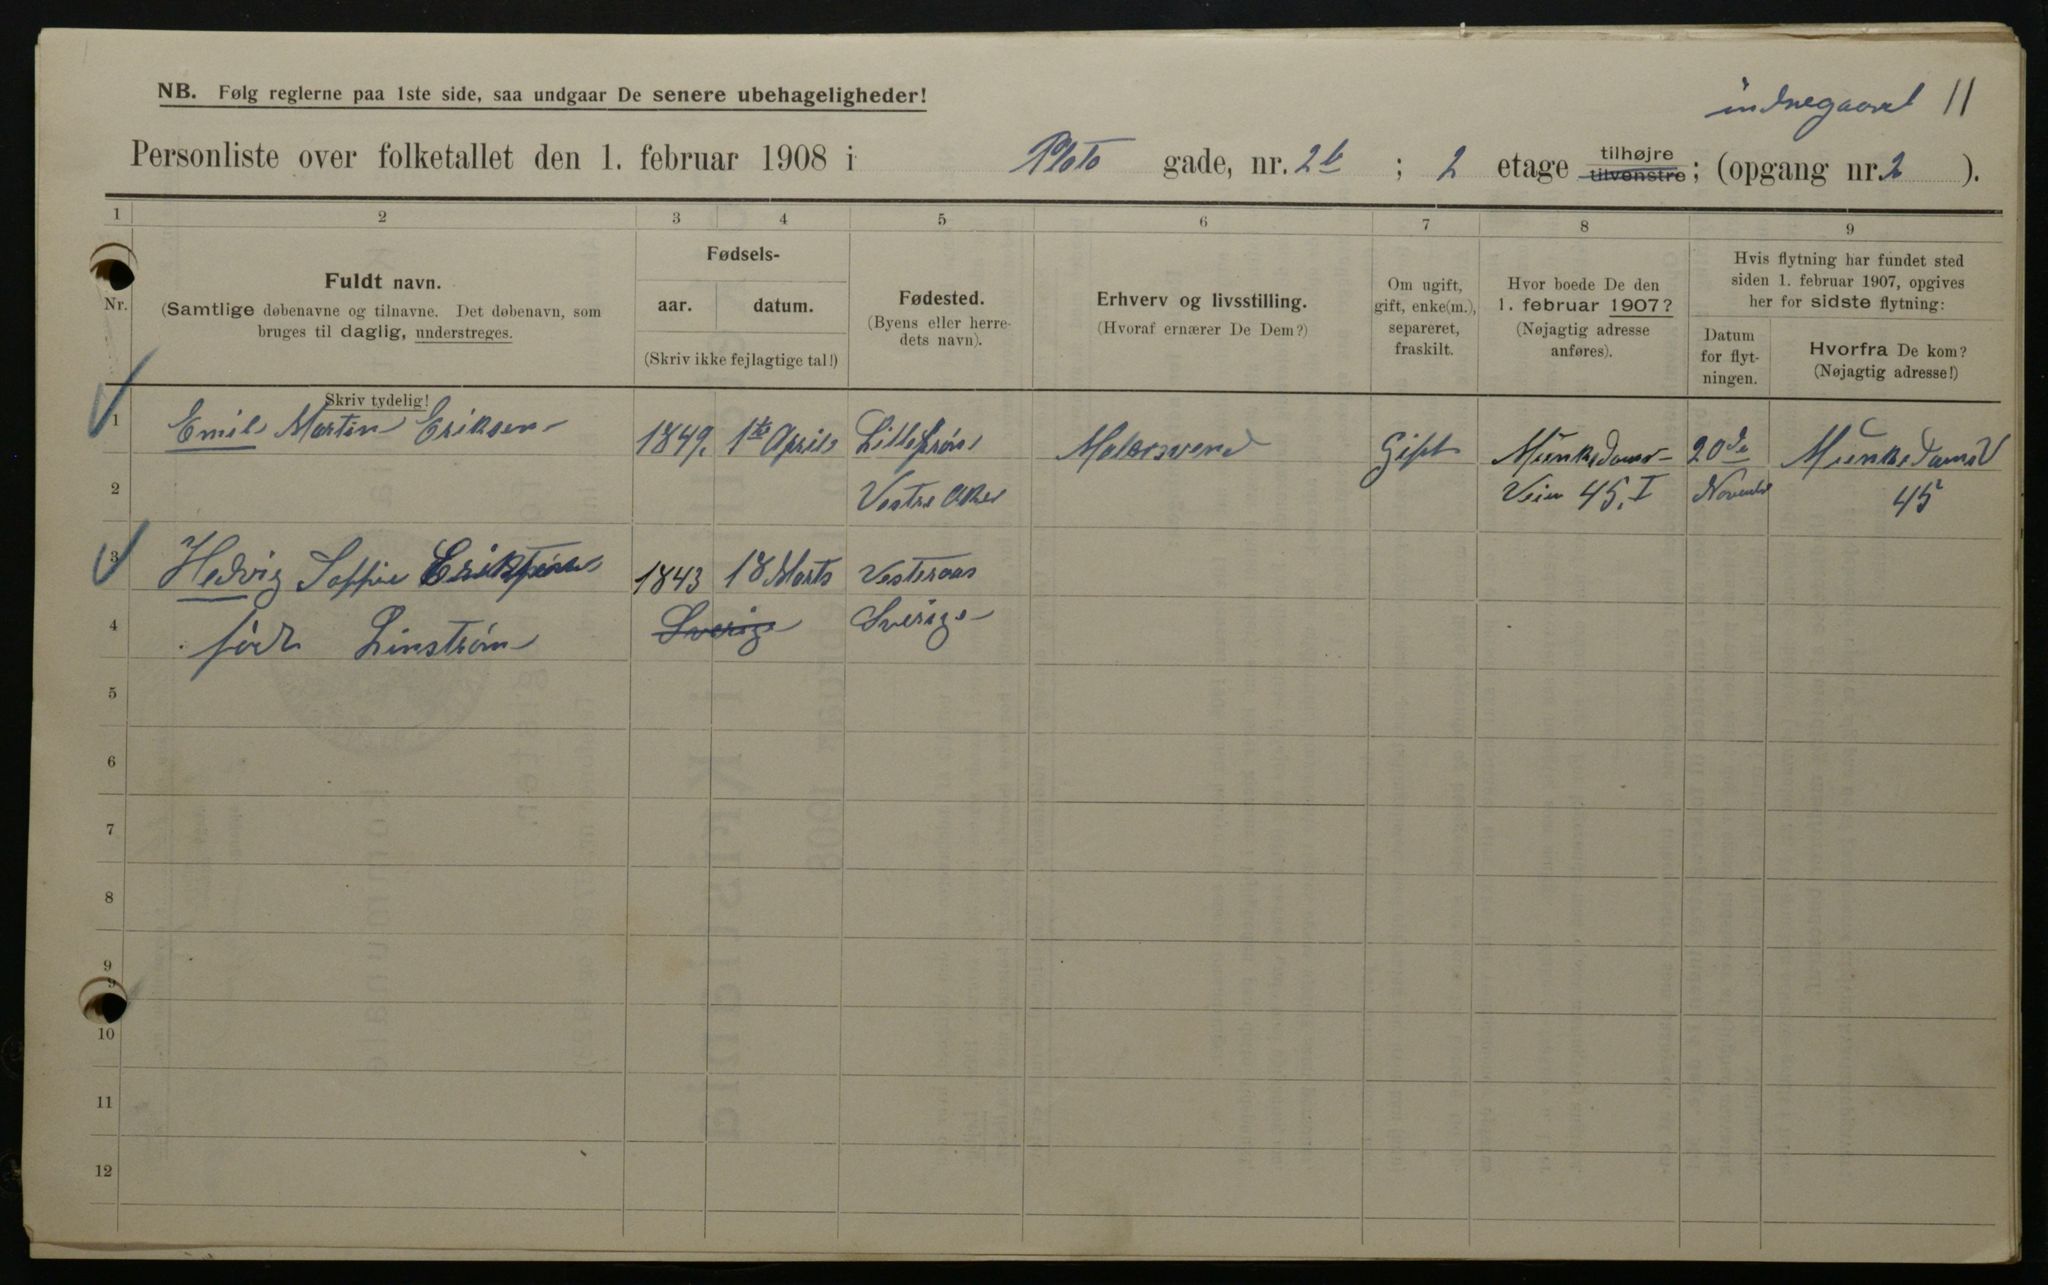 indregaard 11
NB. Følg reglerne paa 1ste side, saa undgaar De senere ubehageligheder!
Personliste over folketallet den 1. februar 1908 i Platø gade, nr. 2b ; 2 etage tilhøjre tilvenstre; (opgang nr. 2 ).
1 2 3 4 5 6 7 8 9
Nr.
Fuldt navn.
(Samtlige døbenavne og tilnavne. Det døbenavn, som
bruges til daglig, understreges.
Skriv tydelig!
Fødsels-
aar. datum.
(Skriv ikke fejlagtige tal!)
Fødested.
(Byens eller herre-
dets navn).
Erhverv og livsstilling.
(Hvoraf ernærer De Dem?)
Om ugift,
gift, enke(m.),
separeret,
fraskilt.
Hvor boede De den
1. februar 1907?
(Nøjagtig adresse
anføres).
Hvis flytning har fundet sted
siden 1. februar 1907, opgives
her for sidste flytning:
Datum
for flyt-
ningen.
Hvorfra De kom?
(Nøjagtig adresse!)
1 Emil Martin Eriksen 1849. 1ste April Lille Frøn Malersvend Gift Munkedams- 20de MunkedamsV
2 Vestre Aker Veien 45. I November 45
3 Hedvig Soffie Eriksen 1843 18 Marts Vesteraas
4 født Linstrøm Sverige Sverige
5
6
7
8
9
9
10
11
12